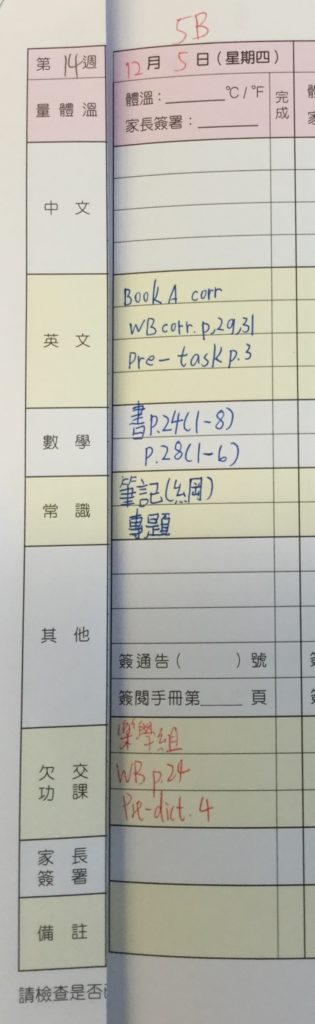 5B
第 14 週
12 月 5 日 (星期四)
量體溫
體溫：______ °C / °F
家長簽署：______
完成
中文
英文
Book A corr
WB corr. p,29,31
Pre-task p.3
數學
書 p.24(1-8)
p.28(1-6)
常識
筆記(綱)
專題
其他
簽通告 (     ) 號
簽閱手冊第____頁
欠交功課
樂學組
WB p.24
Pre-dict. 4
家長簽署
備註
請檢查是否